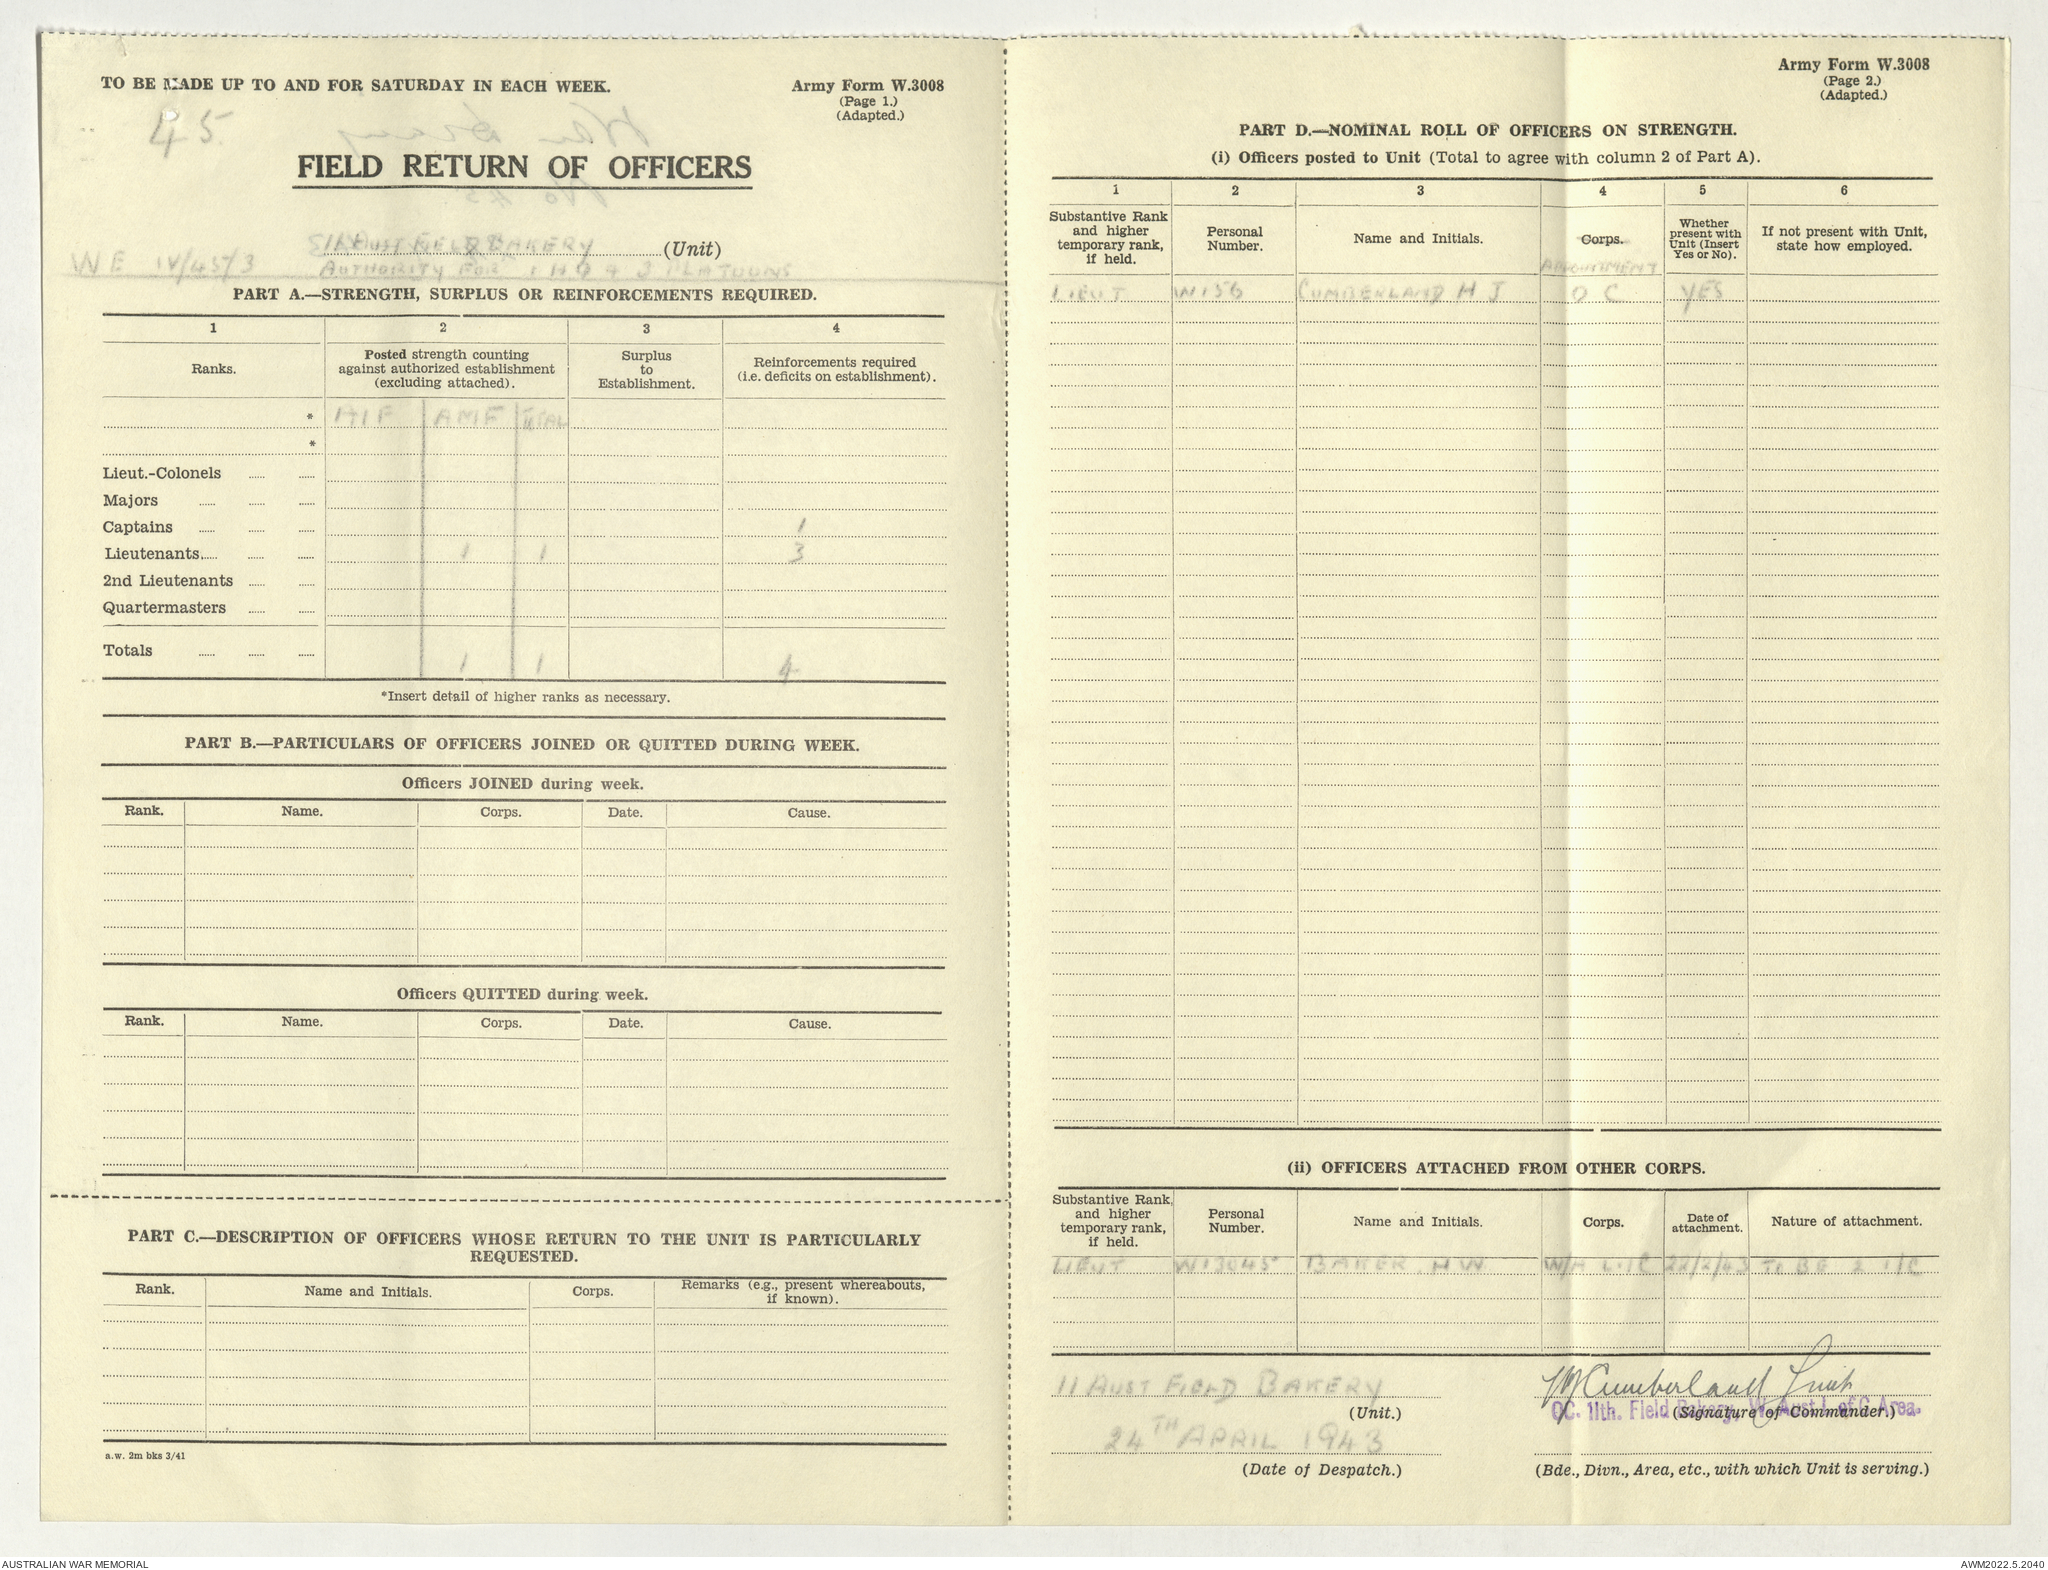 TO BE MADE UP TO AND FOR SATURDAY IN EACH WEEK.
Army Form W.3008
(Page 1.)
(Adapted.)
45.
FIELD RETURN OF OFFICERS
AUST FIELD BAKERY (Unit)
WE IV/45/3 AUTHORITY FOR 1 HQ & 3 PLATOONS
PART A.—STRENGTH, SURPLUS OR REINFORCEMENTS REQUIRED.
1 2 3 4
Ranks. Posted strength counting against authorized establishment (excluding attached). Surplus to Establishment. Reinforcements required (i.e. deficits on establishment).
* AIF AMF TOTAL
*
Lieut.-Colonels
Majors
Captains 1
Lieutenants 1 1 3
2nd Lieutenants
Quartermasters
Totals 1 1 4
*Insert detail of higher ranks as necessary.
PART B.—PARTICULARS OF OFFICERS JOINED OR QUITTED DURING WEEK.
Officers JOINED during week.
Rank. Name. Corps. Date. Cause.
Officers QUITTED during week.
Rank. Name. Corps. Date. Cause.
PART C.—DESCRIPTION OF OFFICERS WHOSE RETURN TO THE UNIT IS PARTICULARLY
REQUESTED.
Rank. Name and Initials. Corps. Remarks (e.g., present whereabouts, if known).
a.w. 2m bks 3/41
Army Form W.3008
(Page 2.)
(Adapted.)
PART D.—NOMINAL ROLL OF OFFICERS ON STRENGTH.
(i) Officers posted to Unit (Total to agree with column 2 of Part A).
1 2 3 4 5 6
Substantive Rank and higher temporary rank, if held. Personal Number. Name and Initials. Corps. APPOINTMENT Whether present with Unit (Insert Yes or No). If not present with Unit, state how employed.
LIEUT W156 CUMBERLAND H J O C YES
(ii) OFFICERS ATTACHED FROM OTHER CORPS.
Substantive Rank and higher temporary rank, if held. Personal Number. Name and Initials. Corps. Date of attachment. Nature of attachment.
LIEUT W13045 BAKER. H W. W/A L of C 22/2/43 To BE 2 I/C
11 AUST FIELD BAKERY
(Unit.)
HJ Cumberland Lieut
OC. 11th. Field Bakery, W. Aust L of C Area.
(Signature of Commander.)
24TH APRIL 1943
(Date of Despatch.)
(Bde., Divn., Area, etc., with which Unit is serving.)
AUSTRALIAN WAR MEMORIAL
AWM2022.5.2040